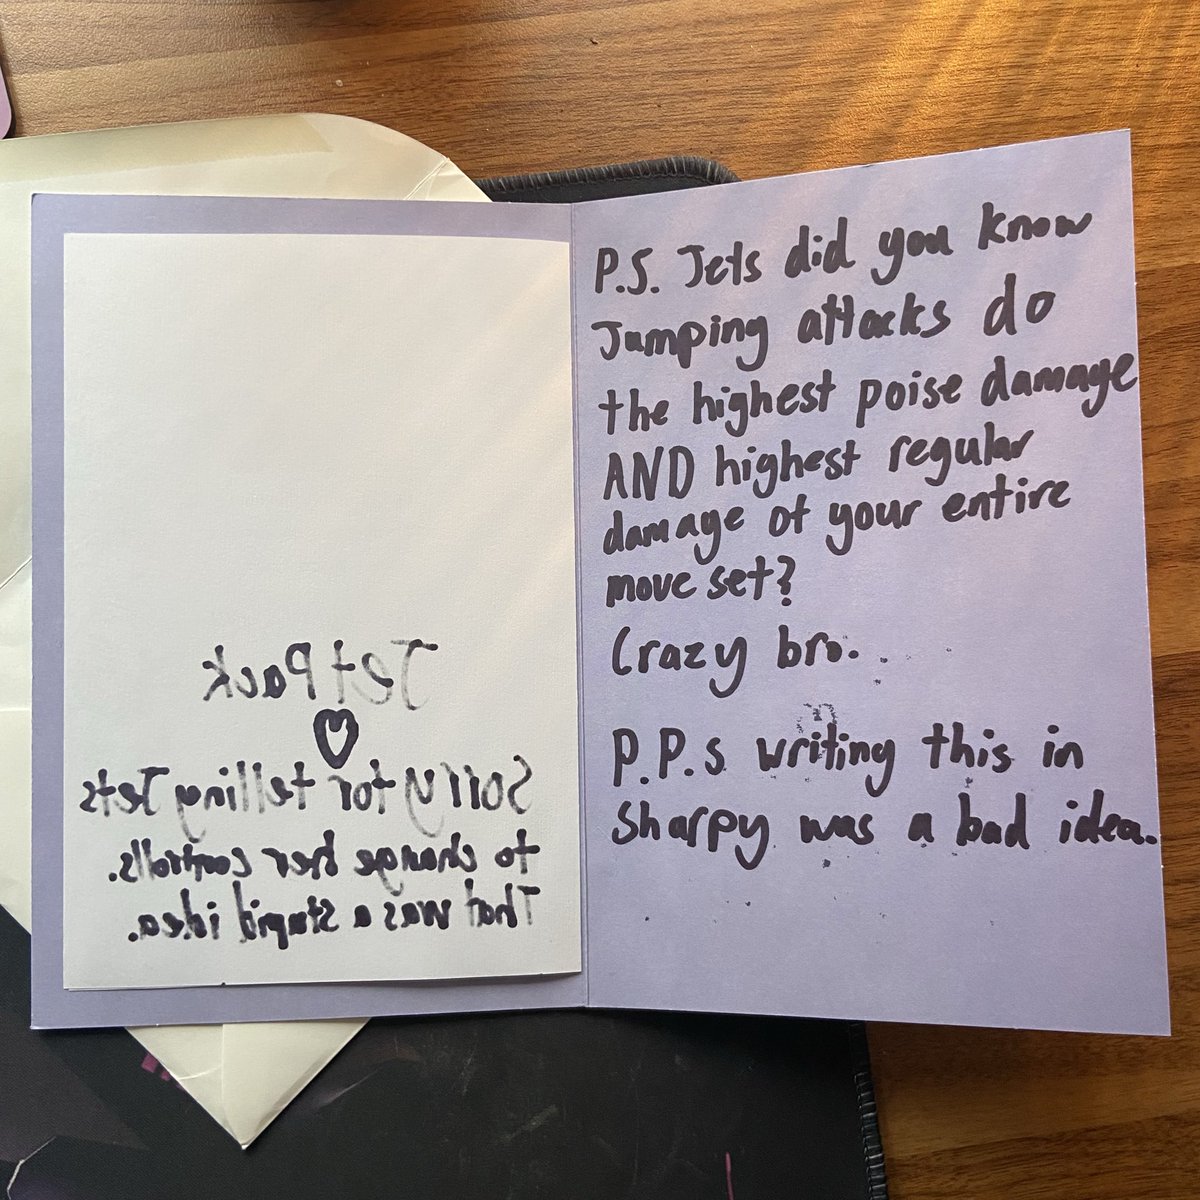 JetPack
Sorry for telling Jets
to change her controlls.
That was a stupid idea.
P.S. Jets did you know
Jumping attacks do
the highest poise damage
AND highest regular
damage of your entire
move set?
Crazy bro.
P.P.S writing this in
Sharpy was a bad idea.